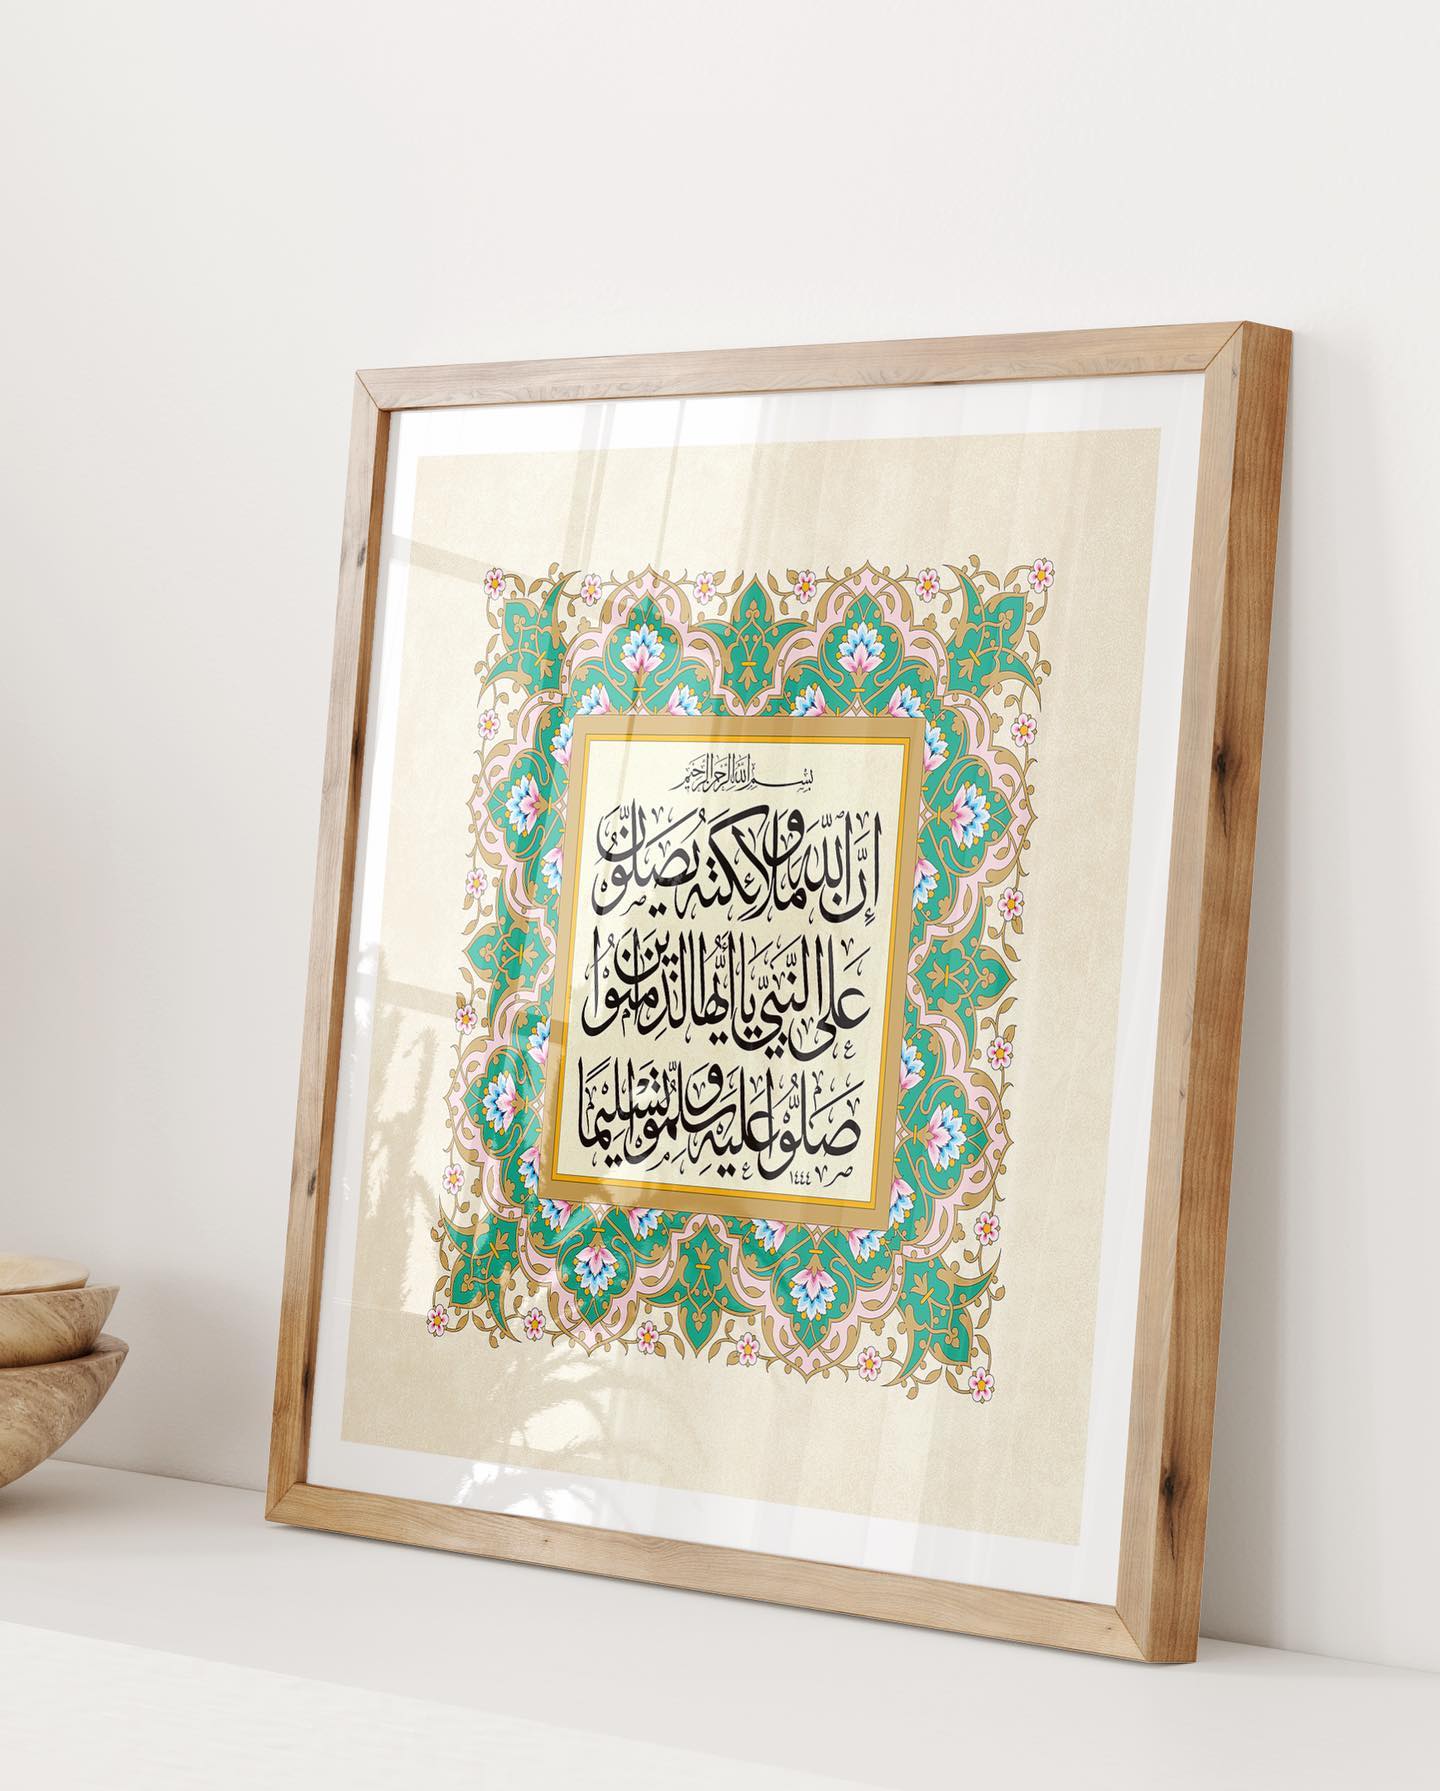 بسم الله الرحمن الرحيم
إِنَّ اللهَ وَمَلَائِكَتَهُ يُصَلُّونَ
عَلَى النَّبِيِّ يَا أَيُّهَا الَّذِينَ آمَنُوا
صَلُّوا عَلَيْهِ وَسَلِّمُوا تَسْلِيمًا
١٤٤٤